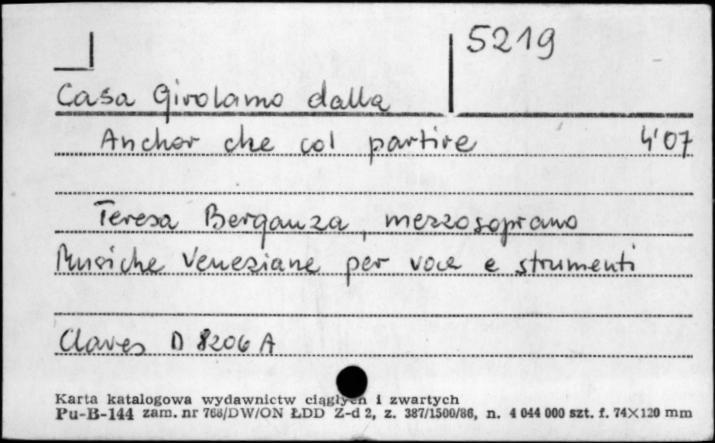 5219
Casa Girolamo dalla
Anchor che col partire 4'07
Teresa Berganza, mezzosoprano
Musiche Veneziane per voce e strumenti
Claves D 8206 A
Karta katalogowa wydawnictw ciągłych i zwartych
Pu-B-144 zam. nr 768/DW/ON ŁDD Z-d 2, z. 387/1500/86, n. 4 044 000 szt. f. 74×120 mm